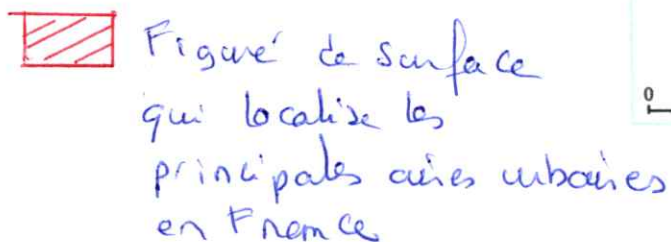 Figuré de surface
qui localise les
principales aires urbaines
en France
0